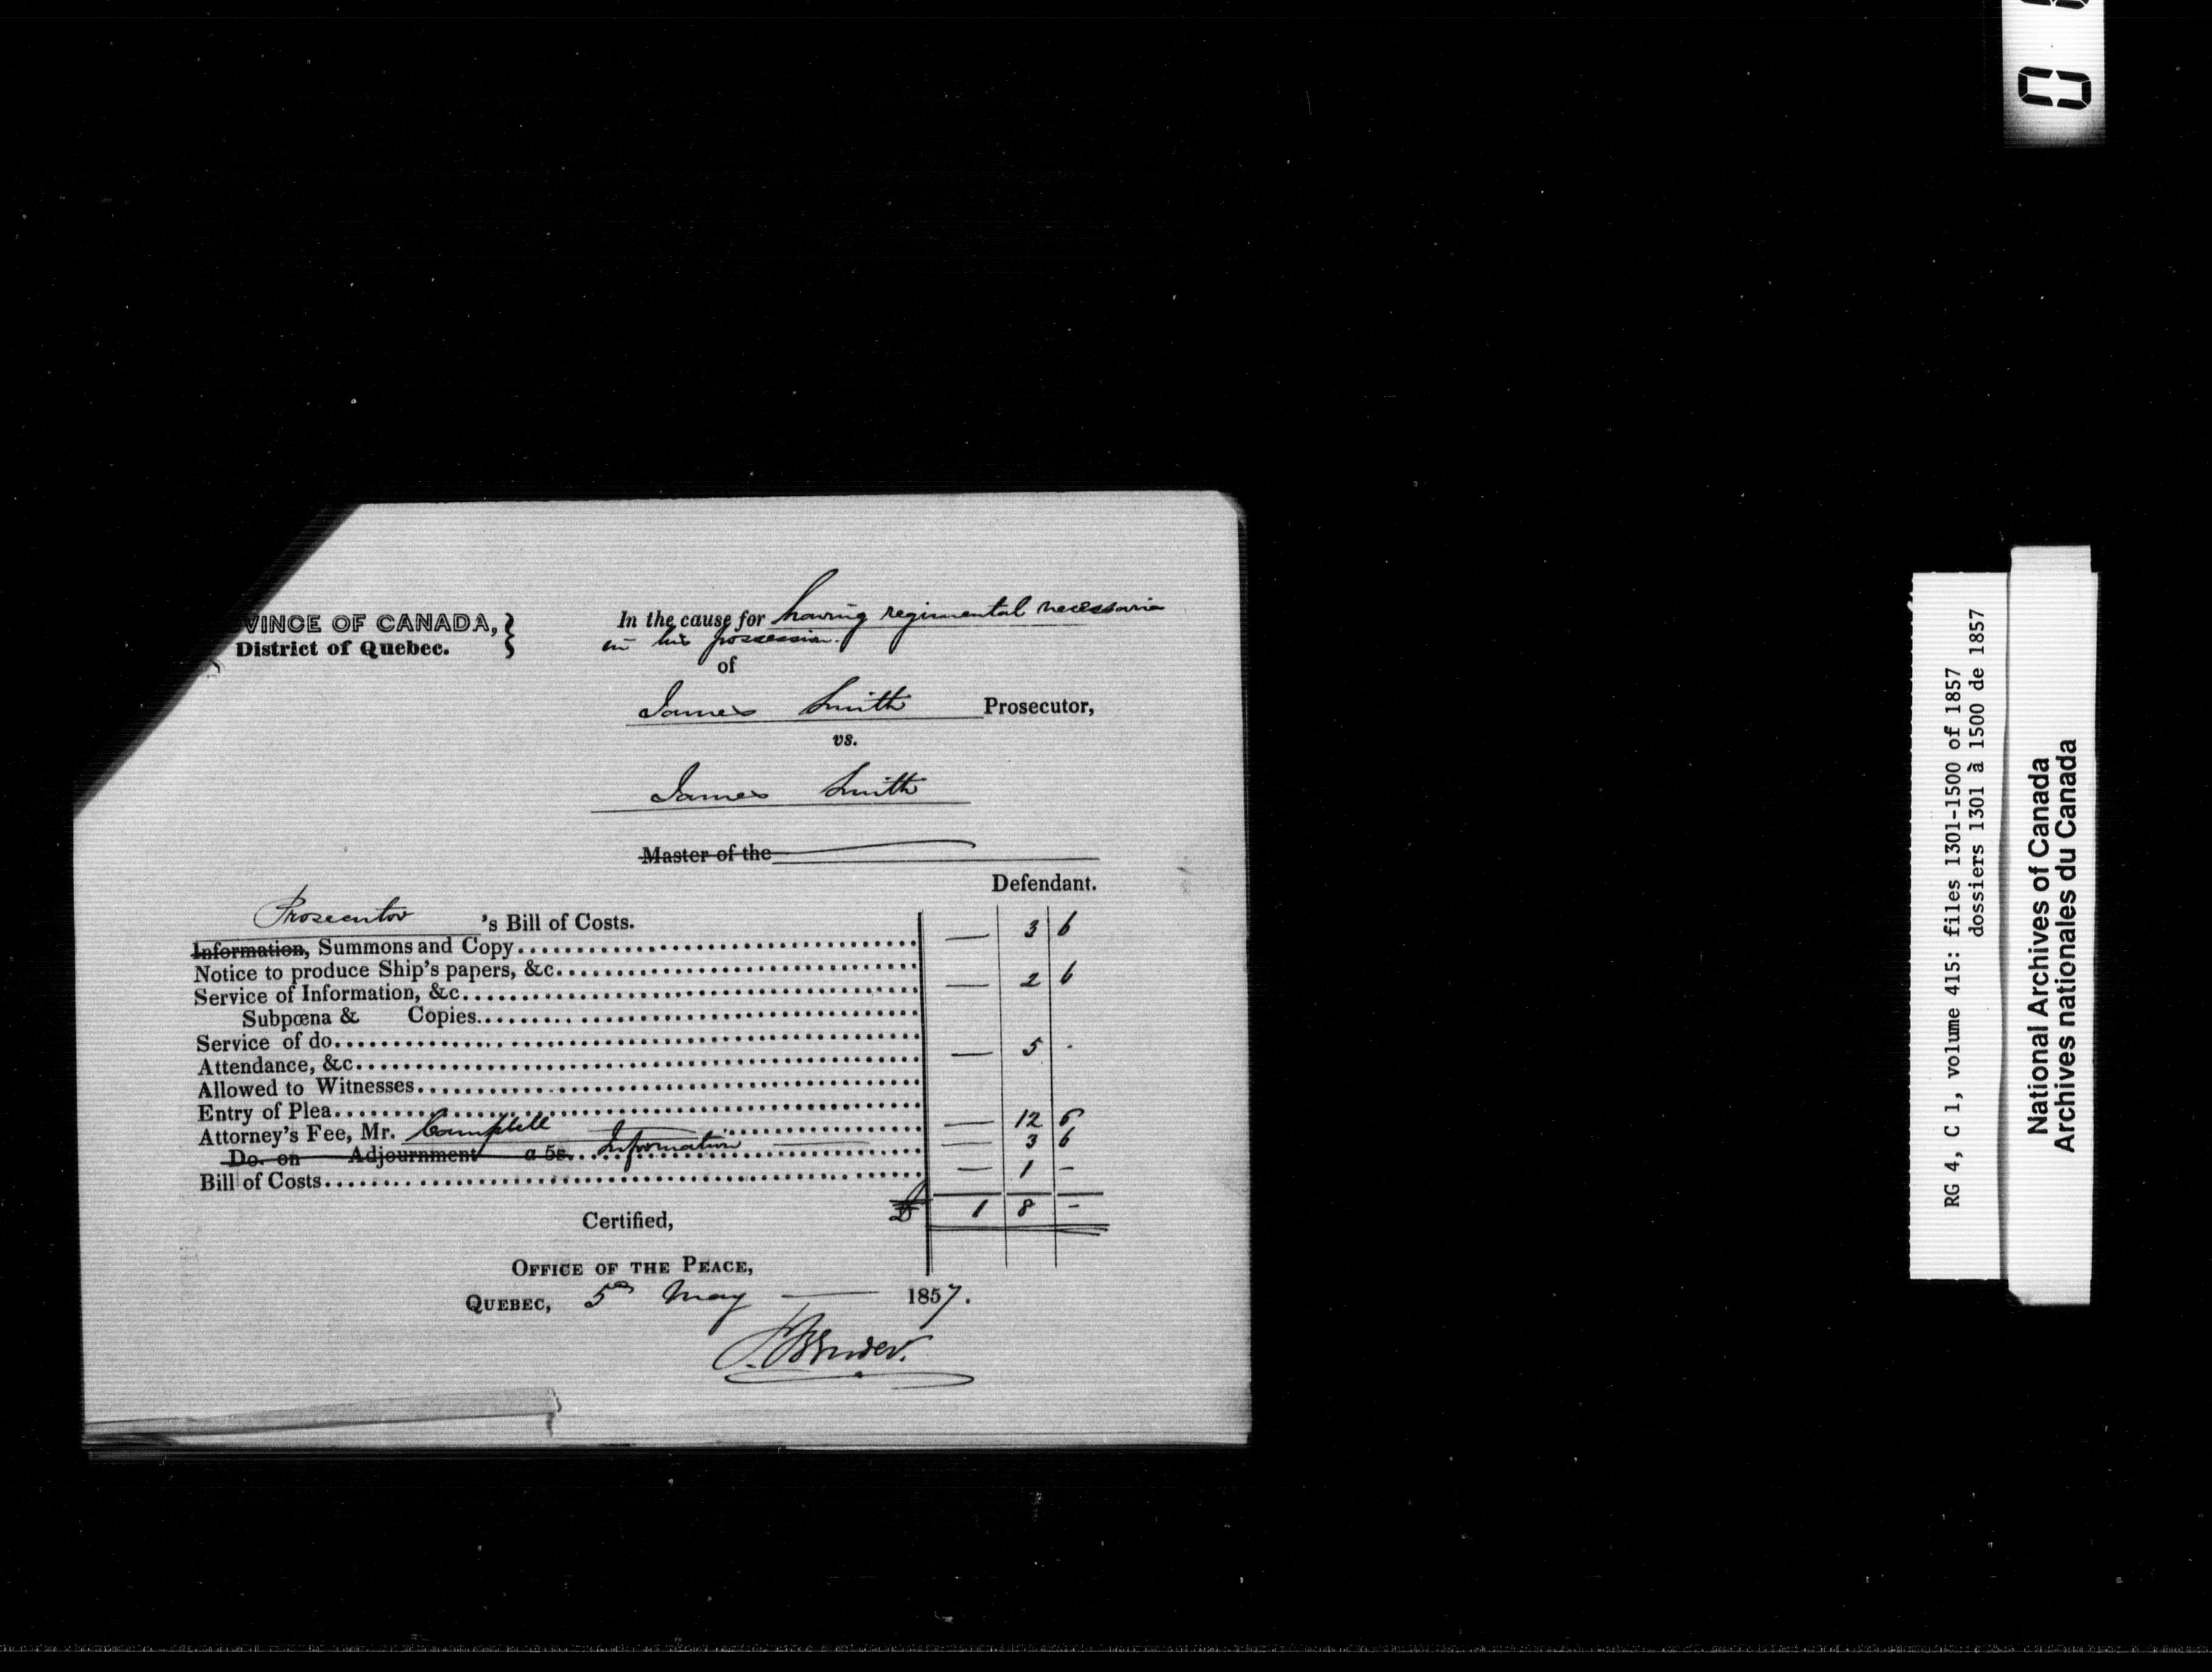 VINCE OF CANADA,
District of Quebec.
In the cause for having regimental necessaries
in his possession.
of
James Smith Prosecutor,
vs.
James Smith
Master of the
Defendant.
Prosecutor 's Bill of Costs.
Information, Summons and Copy — 3 6
Notice to produce Ship's papers, &c.
Service of Information, &c. — 2 6
Subpœna & Copies
Service of do.
Attendance, &c. — 5 -
Allowed to Witnesses
Entry of Plea
Attorney's Fee, Mr. Campbell — 12 6
Do. on Adjournment a 5s. Information — 3 6
Bill of Costs — 1 -
£ 1 8 -
Certified,
OFFICE OF THE PEACE,
QUEBEC, 5th May 1857.
RG 4, C 1, volume 415: files 1301-1500 of 1857
dossiers 1301 à 1500 de 1857
National Archives of Canada
Archives nationales du Canada